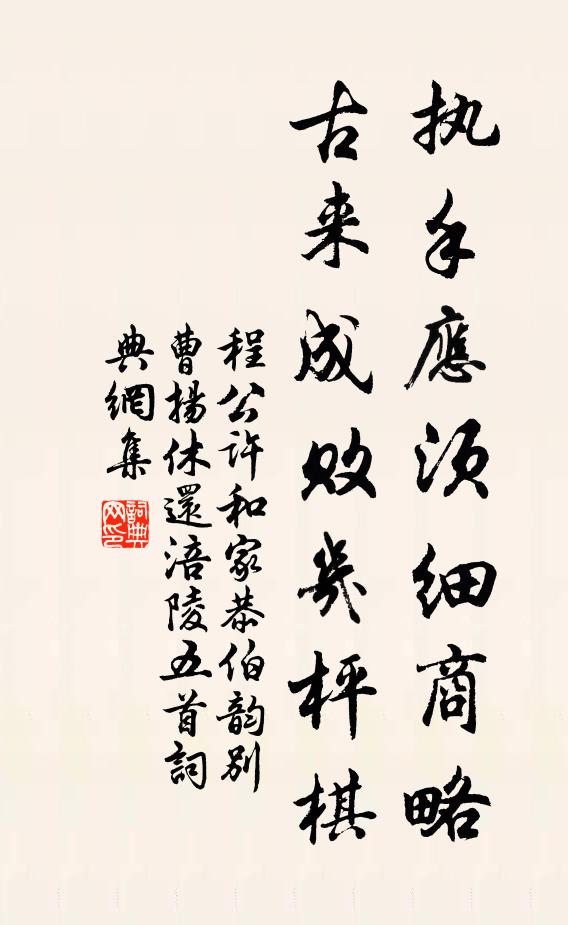 执手應须细商略
古来成败幾枰棋
程公許和家恭伯韵别
曹揚休還涪陵五首詞
典網集
詞典网印